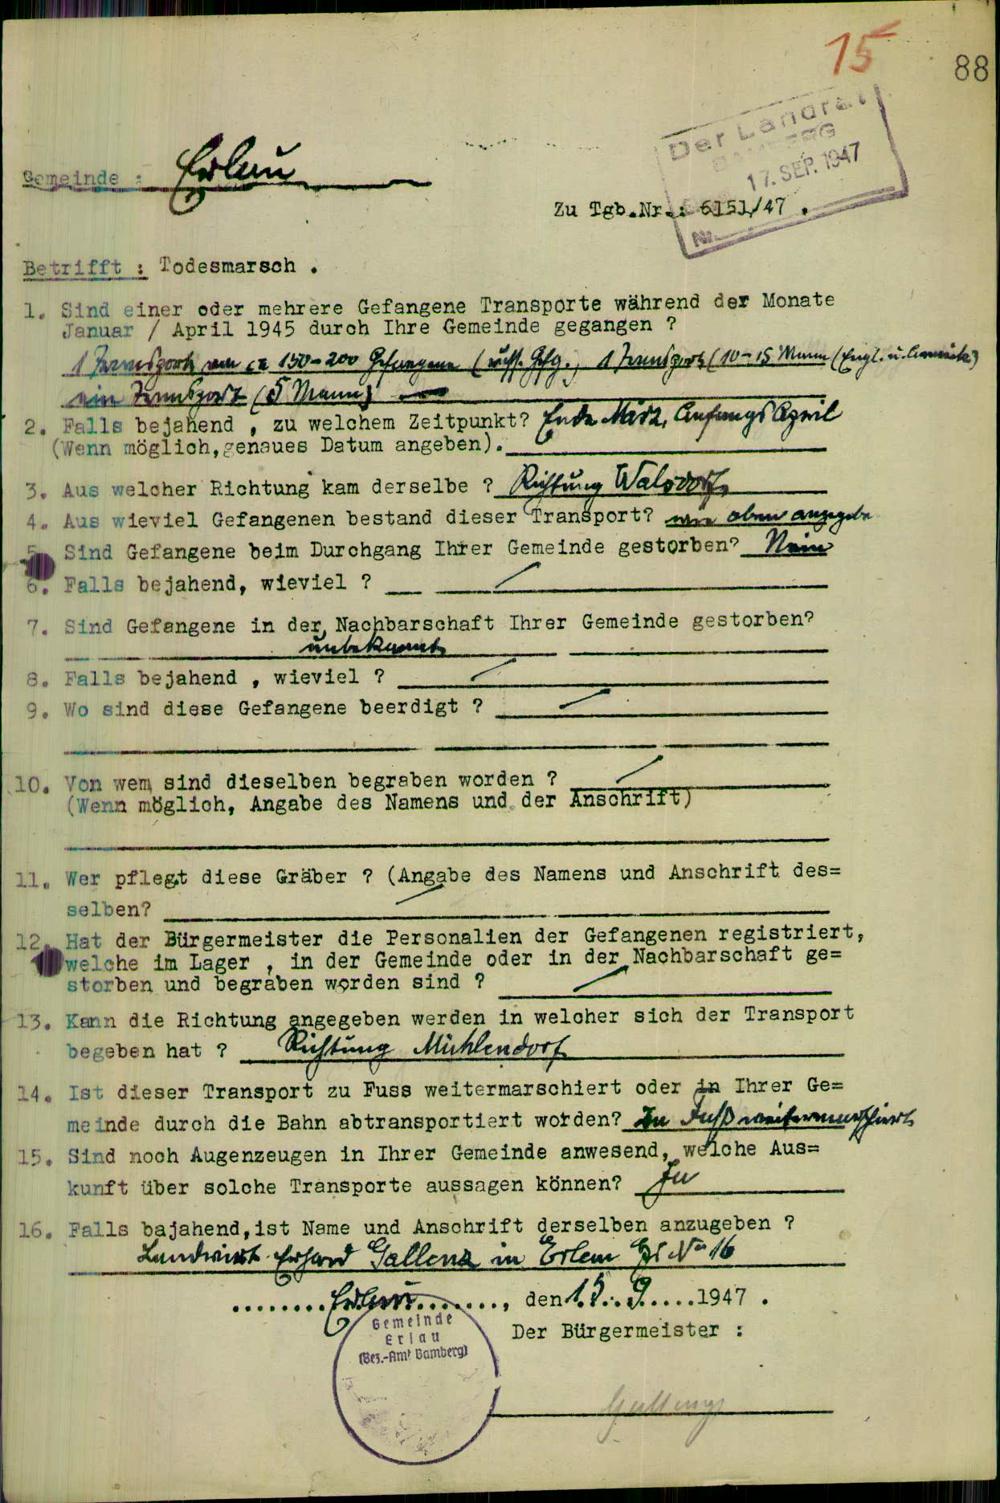 15
88
Der Landrat
BAMBERG
17. SEP. 1947
Nr.
Gemeinde : Erlau
Zu Tgb.Nr.: 6151/47 .
Betrifft : Todesmarsch .
1. Sind einer oder mehrere Gefangene Transporte während der Monate
Januar / April 1945 durch Ihre Gemeinde gegangen ?
1 Transport von ca 150-200 Gefangene (russ. Gefg.; 1 Transport (10-15 Mann (Engl. u. Amerik)
ein Transport (5 Mann)
2. Falls bejahend , zu welchem Zeitpunkt? Ende März, Anfangs April
(Wenn möglich,genaues Datum angeben).
3. Aus welcher Richtung kam derselbe ? Richtung Walsdorf
4. Aus wieviel Gefangenen bestand dieser Transport? wie oben angegebe
5. Sind Gefangene beim Durchgang Ihrer Gemeinde gestorben? Nein
6. Falls bejahend, wieviel ?
7. Sind Gefangene in der Nachbarschaft Ihrer Gemeinde gestorben?
unbekannt
8. Falls bejahend , wieviel ?
9. Wo sind diese Gefangene beerdigt ?
10. Von wem sind dieselben begraben worden ?
(Wenn möglich, Angabe des Namens und der Anschrift)
11. Wer pflegt diese Gräber ? (Angabe des Namens und Anschrift des=
selben?
12. Hat der Bürgermeister die Personalien der Gefangenen registriert,
welche im Lager , in der Gemeinde oder in der Nachbarschaft ge=
storben und begraben worden sind ?
13. Kann die Richtung angegeben werden in welcher sich der Transport
begeben hat ? Richtung Mühlendorf
14. Ist dieser Transport zu Fuss weitermarschiert oder in Ihrer Ge=
meinde durch die Bahn abtransportiert worden? Zu Fuß weitermarschiert
15. Sind noch Augenzeugen in Ihrer Gemeinde anwesend, welche Aus=
kunft über solche Transporte aussagen können? Ja
16. Falls bajahend,ist Name und Anschrift derselben anzugeben ?
Landwirt Erhard Gallena in Erlau Hs No 16
........Erlau........, den 15..9.....1947 .
Gemeinde
Erlau
(Bez.-Amt Bamberg)
Der Bürgermeister :